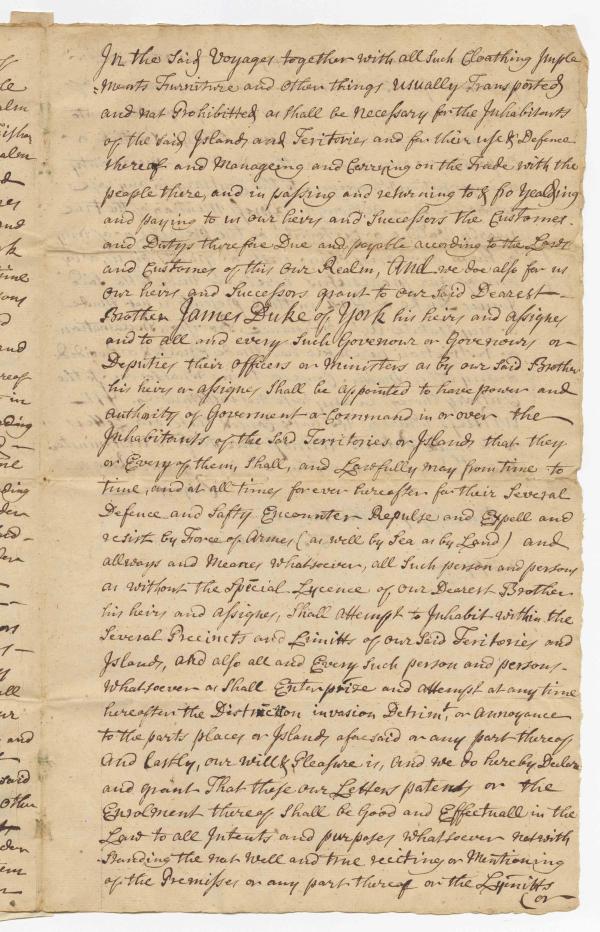 In the Said Voyages together with all Such Cloathing Imple
=ments Furniture and other things usually Transported
and not Prohibitted as shall be necessary for the Inhabitants
of the said Islands and Teritories and for their use & Defence
thereof and Manageing and Carrying on the Trade with the
people there, and in passing and returning to & fro Yealding
and paying to us our heirs and Successors the Customes
and Dutys therefore Due and payable according to the Laws
and Customes of this Our Realm, And we doe also for us
Our heirs and Successors grant to our Said Dearest
Brother James Duke of York his heirs and assignes
and to all and every Such Governour or Governours or
Deputies their officers or Ministers as by our Said Brother
his heirs or assignes Shall be appointed to have power and
authority of Goverment or Command in or over the
Inhabitants of the Said Territories or Islands that they
or Every of them, Shall, and Lawfully may from time to
time, and at all times for ever hereafter for their Several
Defence and Safty Encounter Repulse and Expell and
resist by Force of Armes (as well by Sea as by Land) and
allways and Meanes whatsoever, all Such person and persons
as without the Special Lycence of our Dearest Brother
his heirs and assignes, Shall attempt to Inhabit within the
Several Precincts and Limitts of our Said Teritories and
Islands, and also all and Every Such person and persons
whatsoever as Shall Enterprize and attempt at any time
hereafter the Distruction invasion Detrimt. or Annoyance
to the parts places or Islands aforesaid or any part thereof
And Lastly, our will & Pleasure is, and we do hereby Declare
and grant That these our Letters patents or the
Enrolment thereof Shall be Good and Effectuall in the
Law to all Intents and purposes whatsoever notwith
Standing the not well and true reciting or Mentioning
of the Premisses or any part thereof or the Lymitts
or